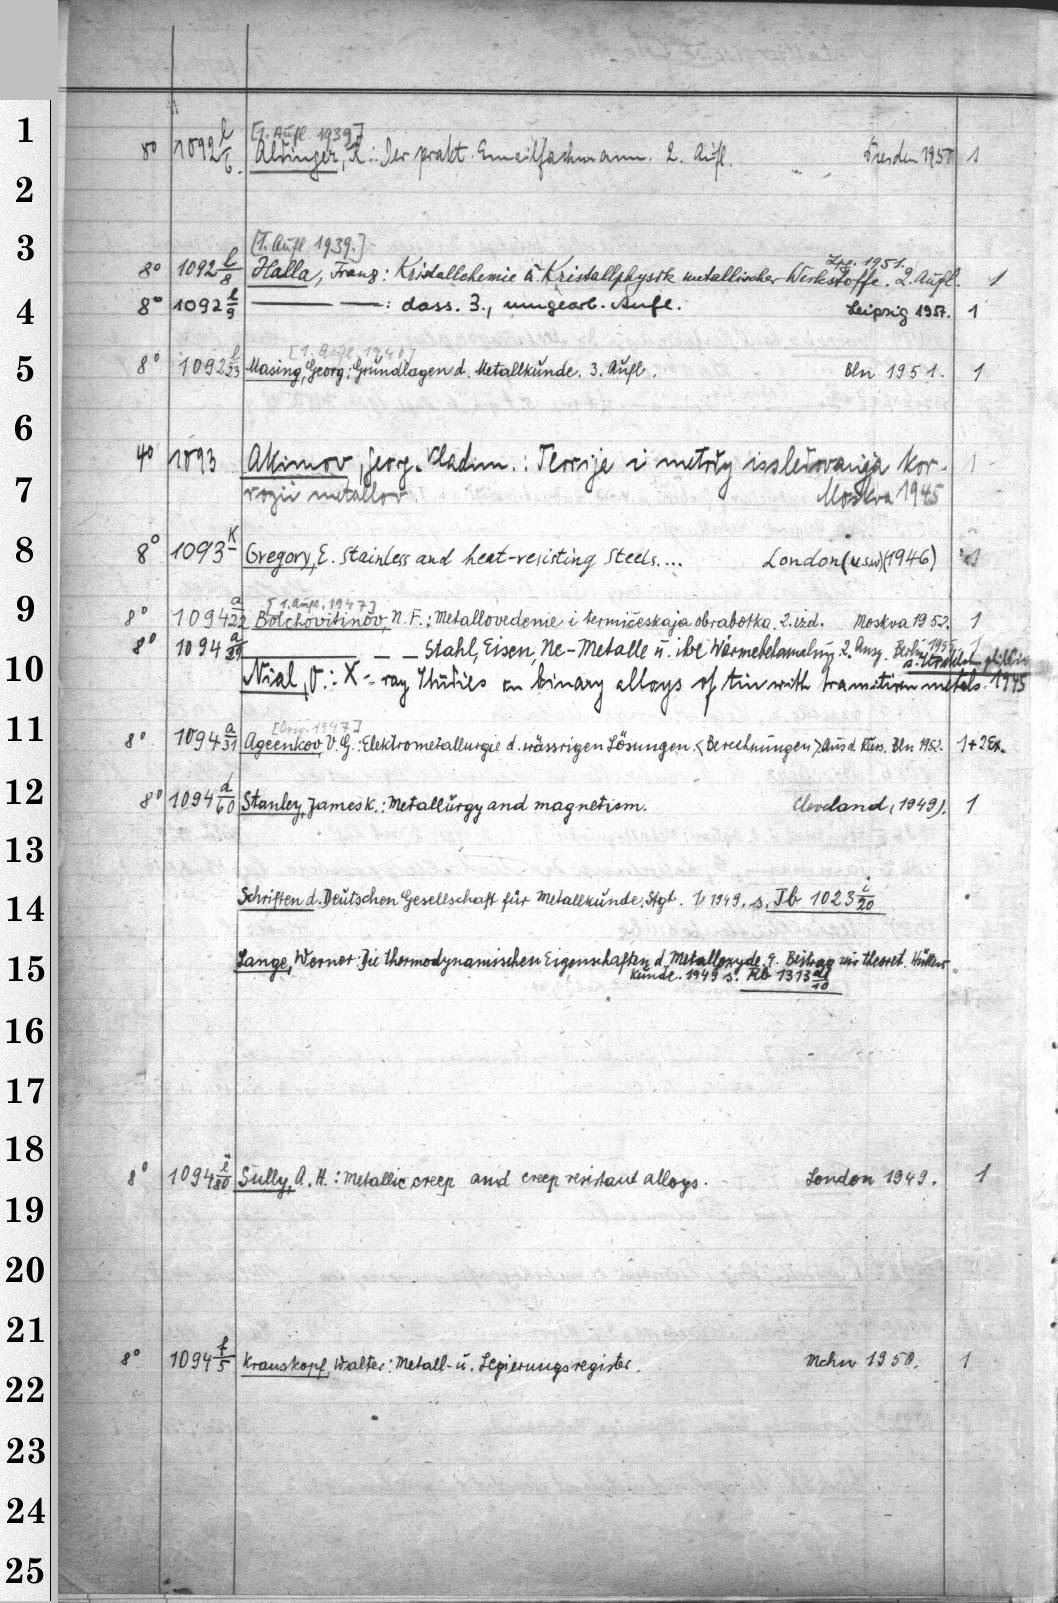 1
2
3
4
5
6
7
8
9
10
11
12
13
14
15
16
17
18
19
20
21
22
23
24
25
[1. Aufl. 1939]
8° 1092 l/6. Aldinger, R.: Der prakt. Emailfachmann. 2. Aufl. Dresden 1950 1
[1. Aufl. 1939.] Lpz. 1951.
8° 1092 l/8 Halla, Franz: Kristallchemie u. Kristallphysik metallischer Werkstoffe. 2. Aufl. 1
8° 1092 l/9 ——— ——: dass. 3., umgearb. Aufl. Leipzig 1957. 1
[1. Aufl. 1940]
8° 1092 l/33 Masing, Georg: Grundlagen d. Metallkunde. 3. Aufl. Bln 1951. 1
4° 1093 Akimov, Georg. Vladim.: Teorija i metody issledovanija kor-
rozii metallov Moskva 1945
8° 1093 K Gregory, E. Stainless and heat-resisting Steels.... London (usw) (1946) 1
[1. Aufl. 1947]
8° 1094 a/22 Bolchovitinov, N. F.: Metallovedenie i termičeskaja obrabotka. 2. izd. Moskva 1952. 1
8° 1094 a/ ——— — — Stahl, Eisen, Ne-Metalle u. ihre Wärmebehandlung 2. Ausg. Berlin 1
Nial, O.: X-ray studies on binary alloys of tin with transition metals. 1945
8° 1094 a/31 Ageenkov, V. G.: Elektrometallurgie d. wässrigen Lösungen <Berechnungen> Aus d. Russ. Bln 1952. 1+2 Ex.
8° 1094 d/60 Stanley, James K.: Metallurgy and magnetism. Cleveland, (1949). 1
Schriften d. Deutschen Gesellschaft für Metallkunde, Stgt. 1/ 1949. s. Tb 1023 i/20
Lange, Werner: Die thermodynamischen Eigenschaften d. Metalloxyde. E. Beitrag zur theoret. Hütten-
kunde. 1949 s. Rb 1313 /10
8° 1094 e/80 Sully, A. H.: Metallic creep and creep resistant alloys. London 1949. 1
8° 1094 f/5 Krauskopf, Walter: Metall- u. Legierungsregister. Mchn 1950. 1